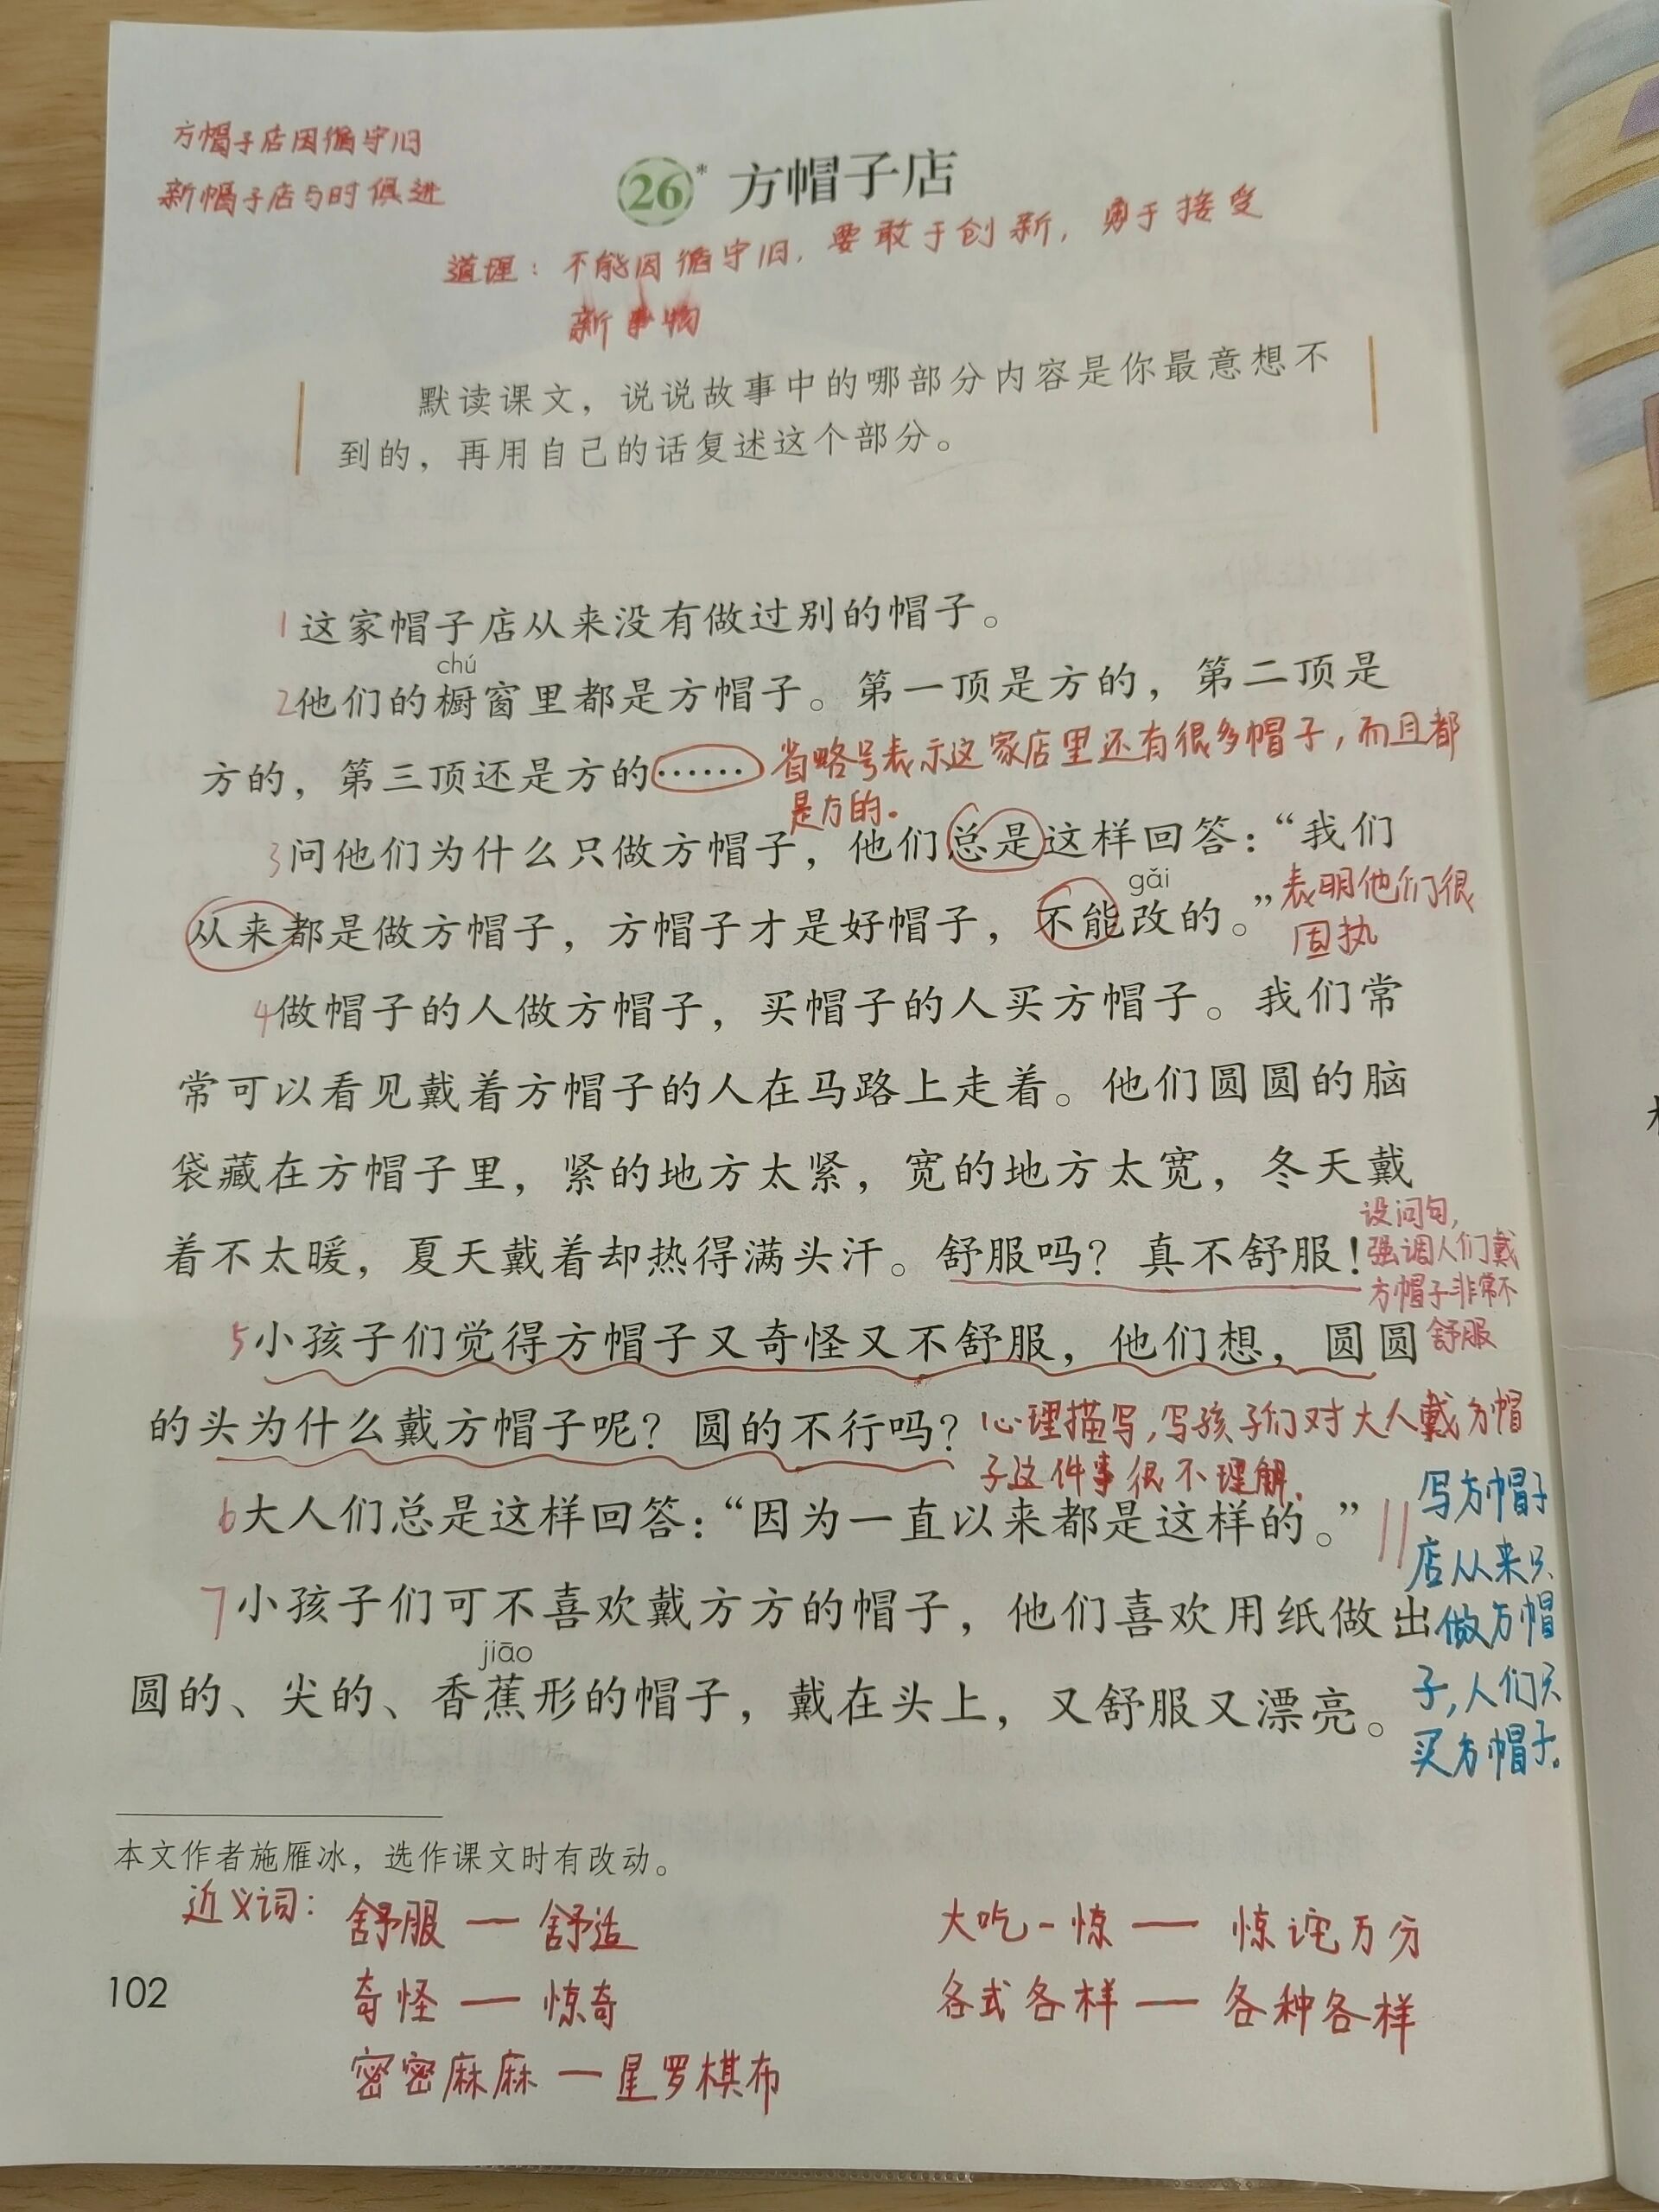 方帽子店因循守旧
新帽子店与时俱进
26* 方帽子店
道理：不能因循守旧，要敢于创新，勇于接受
新事物
默读课文，说说故事中的哪部分内容是你最意想不
到的，再用自己的话复述这个部分。
1这家帽子店从来没有做过别的帽子。
chú
2他们的橱窗里都是方帽子。第一顶是方的，第二顶是
方的，第三顶还是方的…… 省略号表示这家店里还有很多帽子，而且都
是方的。
3问他们为什么只做方帽子，他们总是这样回答：“我们
gǎi
从来都是做方帽子，方帽子才是好帽子，不能改的。” 表明他们很
固执
4做帽子的人做方帽子，买帽子的人买方帽子。我们常
常可以看见戴着方帽子的人在马路上走着。他们圆圆的脑
袋藏在方帽子里，紧的地方太紧，宽的地方太宽，冬天戴
着不太暖，夏天戴着却热得满头汗。舒服吗？真不舒服！
设问句，
强调人们戴
方帽子非常不
舒服
5小孩子们觉得方帽子又奇怪又不舒服，他们想，圆圆
的头为什么戴方帽子呢？圆的不行吗？ 心理描写，写孩子们对大人戴方帽
子这件事很不理解。
6大人们总是这样回答：“因为一直以来都是这样的。”
7小孩子们可不喜欢戴方方的帽子，他们喜欢用纸做出
jiāo
圆的、尖的、香蕉形的帽子，戴在头上，又舒服又漂亮。
写方帽子
店从来只
做方帽
子，人们只
买方帽子。
本文作者施雁冰，选作课文时有改动。
近义词： 舒服 — 舒适 大吃一惊 — 惊诧万分
奇怪 — 惊奇 各式各样 — 各种各样
密密麻麻 — 星罗棋布
102